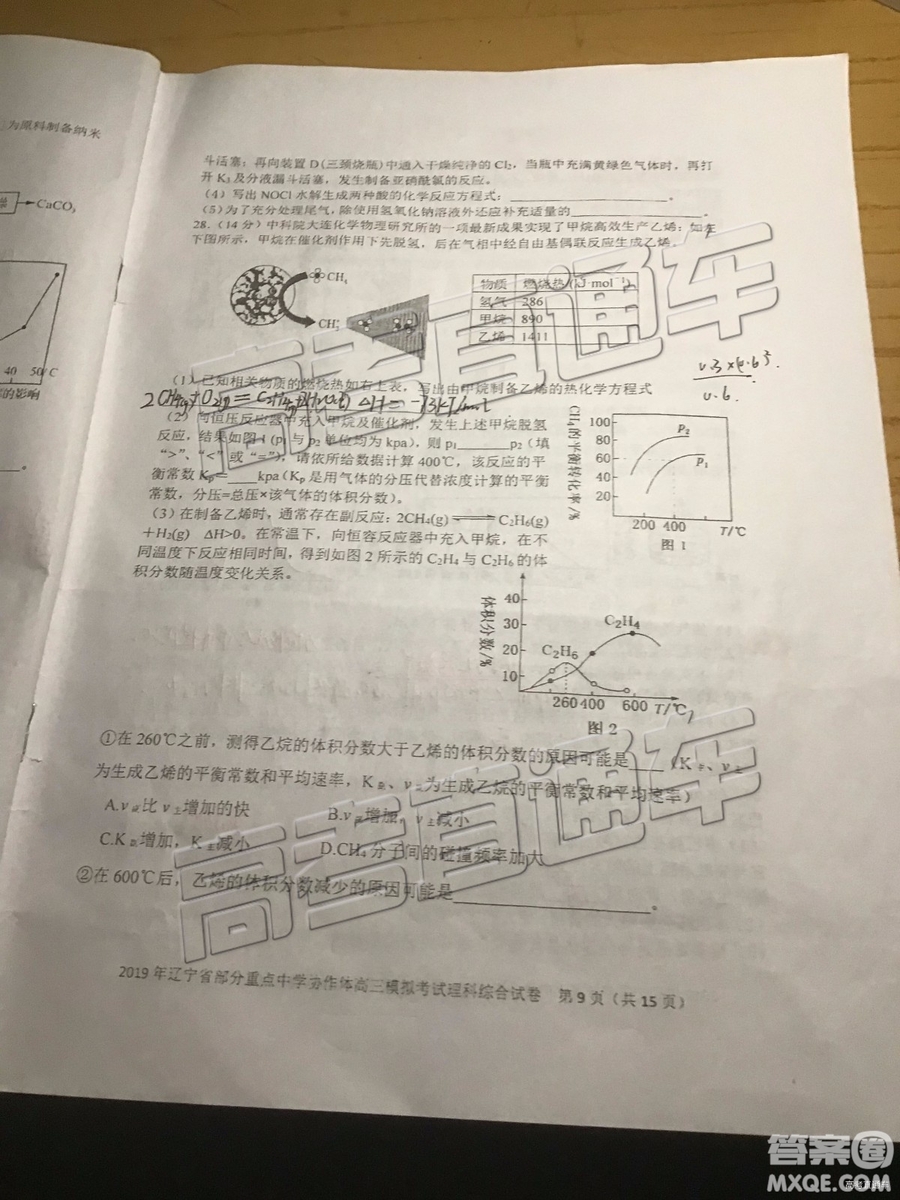 为原料制备纳米
CaCO₃
40 50/℃
的影响
斗活塞；再向装置 D(三颈烧瓶)中通入干燥纯净的 Cl₂，当瓶中充满黄绿色气体时，再打
开 K₃及分液漏斗活塞，发生制备亚硝酰氯的反应。
（4）写出 NOCl 水解生成两种酸的化学反应方程式：
（5）为了充分处理尾气,除使用氢氧化钠溶液外还应补充适量的 。
28.（14 分）中科院大连化学物理研究所的一项最新成果实现了甲烷高效生产乙烯：如左
下图所示，甲烷在催化剂作用下先脱氢，后在气相中经自由基偶联反应生成乙烯。
CH₄
CH₂
物质 燃烧热/(kJ·mol⁻¹)
氢气 286
甲烷 890
乙烯 1411
（1）已知相关物质的燃烧热如右上表，写出由甲烷制备乙烯的热化学方程式
（2）向恒压反应器中充入甲烷及催化剂，发生上述甲烷脱氢
反应，结果如图 1 (p₁与 p₂单位均为 kpa)，则 p₁ p₂（填
“>”、“<” 或 “=”)，请依所给数据计算 400℃，该反应的平
衡常数 Kp= kpa ( Kp 是用气体的分压代替浓度计算的平衡
常数，分压=总压×该气体的体积分数)。
（3）在制备乙烯时，通常存在副反应：2CH₄(g) C₂H₆(g)
＋H₂(g) ΔH>0。在常温下，向恒容反应器中充入甲烷，在不
同温度下反应相同时间，得到如图 2 所示的 C₂H₄ 与 C₂H₆ 的体
积分数随温度变化关系。
CH₄的平衡转化率/%
100
80
60
40
20
P₂
P₁
200 400 T/℃
图 1
体积分数/%
40
30
20
10
C₂H₆
C₂H₄
260 400 600 T/℃
图 2
①在 260℃之前，测得乙烷的体积分数大于乙烯的体积分数的原因可能是 （K 主、v 主
为生成乙烯的平衡常数和平均速率，K 副、v 副为生成乙烷的平衡常数和平均速率）
A.v 副比 v 主增加的快 B.v 副增加，v 主减小
C.K 副增加，K 主减小 D.CH₄ 分子间的碰撞频率加大
②在 600℃后，乙烯的体积分数减少的原因可能是 。
2019 年辽宁省部分重点中学协作体高三模拟考试理科综合试卷 第 9 页（共 15 页）
高考直通车
高考直通车
答案圈
MXQE.COM